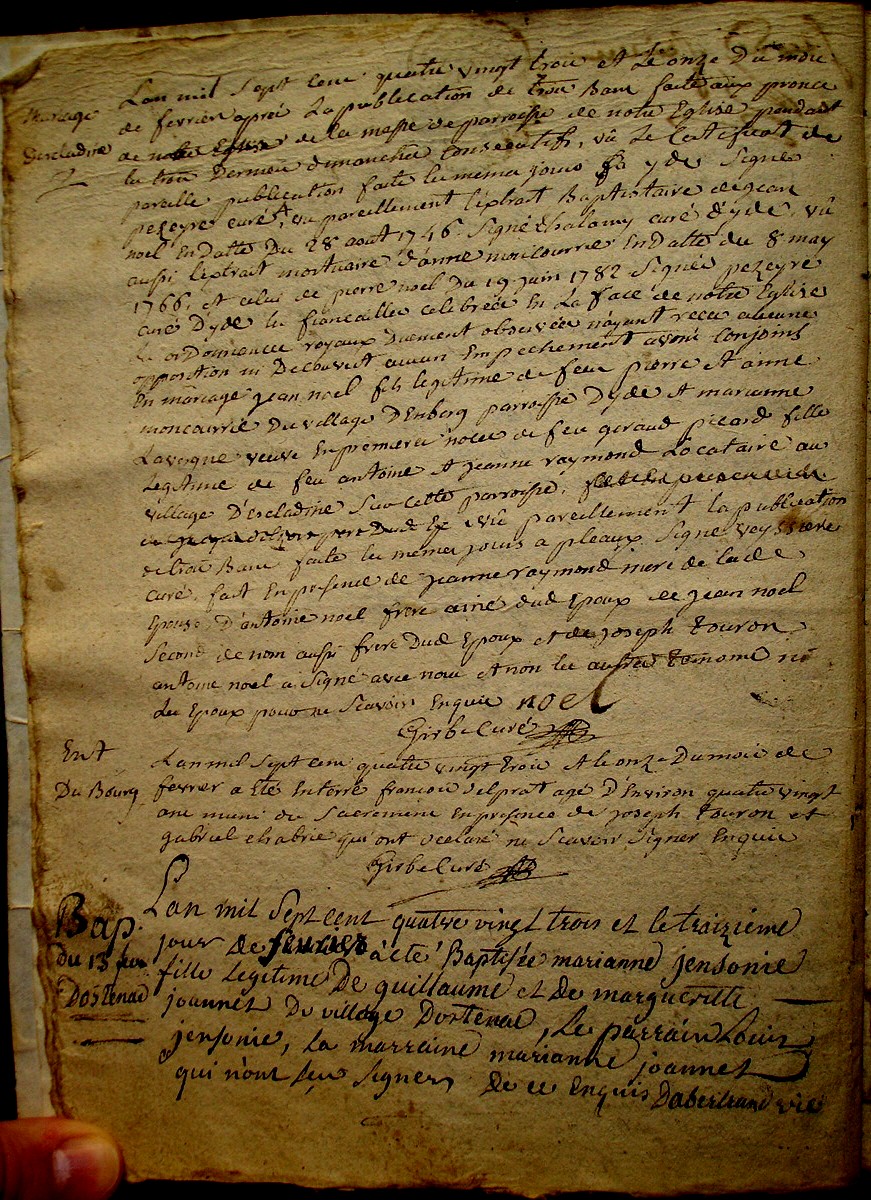 Mariage
Descladine
L'an mil sept cent quatre vingt troix et le onze du mois
de fevrier après la publication de trois Banc faite aux prones
de la messe de parroisse de notre Eglise pendant
les trois derniers dimanches consecutifs, vû le Certificat de
pareille publication faite les memes jours yde Signé
pezeyre curé, vu pareillement l'extrait Baptistaire de jean
noel En datte Du 28 aout 1746 Signé chalamy curé d'yde, vû
aussi l'extrait mortuaire d'anne moncourrier En datte du 8 may
1766 et celui de pierre noel du 19 juin 1782 Signée pezeyre
curé D'yde les fiancailles celebrées En La face de notre Eglise
Les ordonnences royaux Duement observées n'ayant recu aucune
opposition ni Decouvert aucun Empechement avons Conjoint
En mariage jean noel fils legitime de feu pierre et anne
moncourrié Du village D'Enborg parroisse D'yde et marianne
Lavergne veuve En premieres noces de feu geraud picard fille
Legitime de feu antoine et jeanne raymond Locataire au
village D'escladine Sur cette parroisse,
vû pareillement la publication
de trois Banc faite les memes jours a pleaux Signé veyssiere
curé. fait En presence de jeanne raymond mere de lade
Epouse D'antoine noel frere ainé dud Epoux de jean noel
Second de nom aussi frere Dud Epoux et de joseph touron
antoine noel a Signé avec nous et non les autres temoins ni
Les Epoux pour ne Scavoir Enquis noel
Girbe Curé
Ent
Du Bourg
L'an mil Sept cent quatre vingt troix et le onze Du mois de
fevrier a Eté Enterré francois delprat agé D'Environ quatre vingt
ans muni des Sacremens En presence de joseph touron et
gabriel chabrie qui ont declaré ne Scavoir Signer Enquis
Girbe Curé
Bap.
du 13 fev
Dostenac
L'an mil Sept cent quatre vingt trois et le traizième
jour de fevrier à été Baptisée marianne jensonie
fille legitime De guillaume et de margueritte
joannet Du village Dostenac, Le parrain Louis
jensonie, la marraine marianne joannet
qui n'ont Sçu Signer De ce Enquis Dabertrand vic